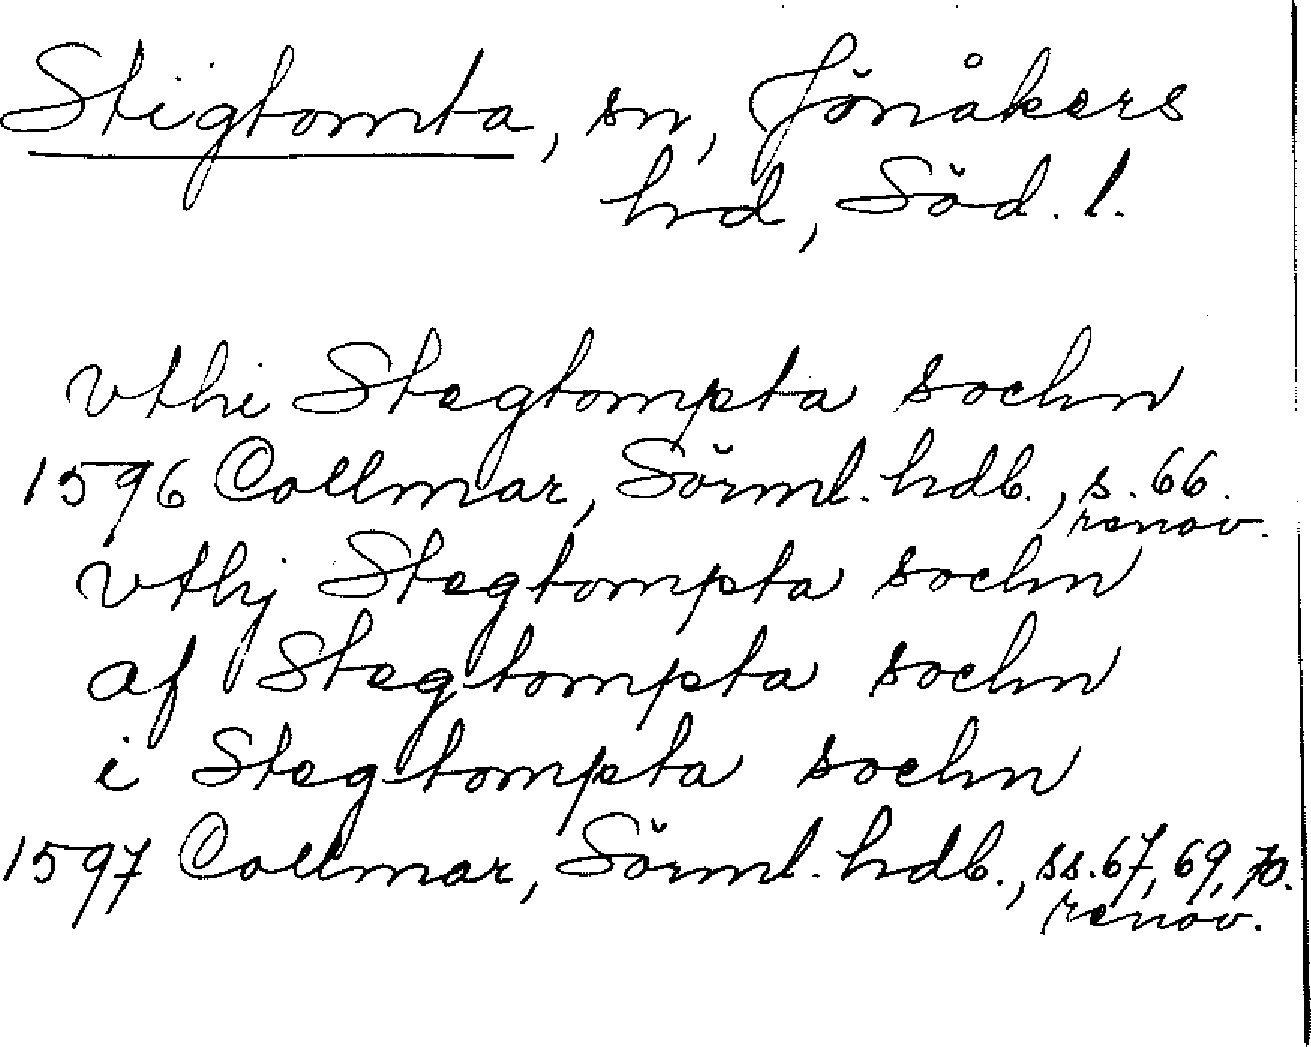 Stigtomta, sn, Jönåkers
hrd, Söd. l.
vthi Stegtompta sochn
1596 Collmar, Sörml. hdb., s. 66.
renov.
vthj Stegtompta sochn
af Stegtompta sochn
i Stegtompta sochn
1597 Collmar, Sörml. hdb., ss. 67, 69, 70.
renov.